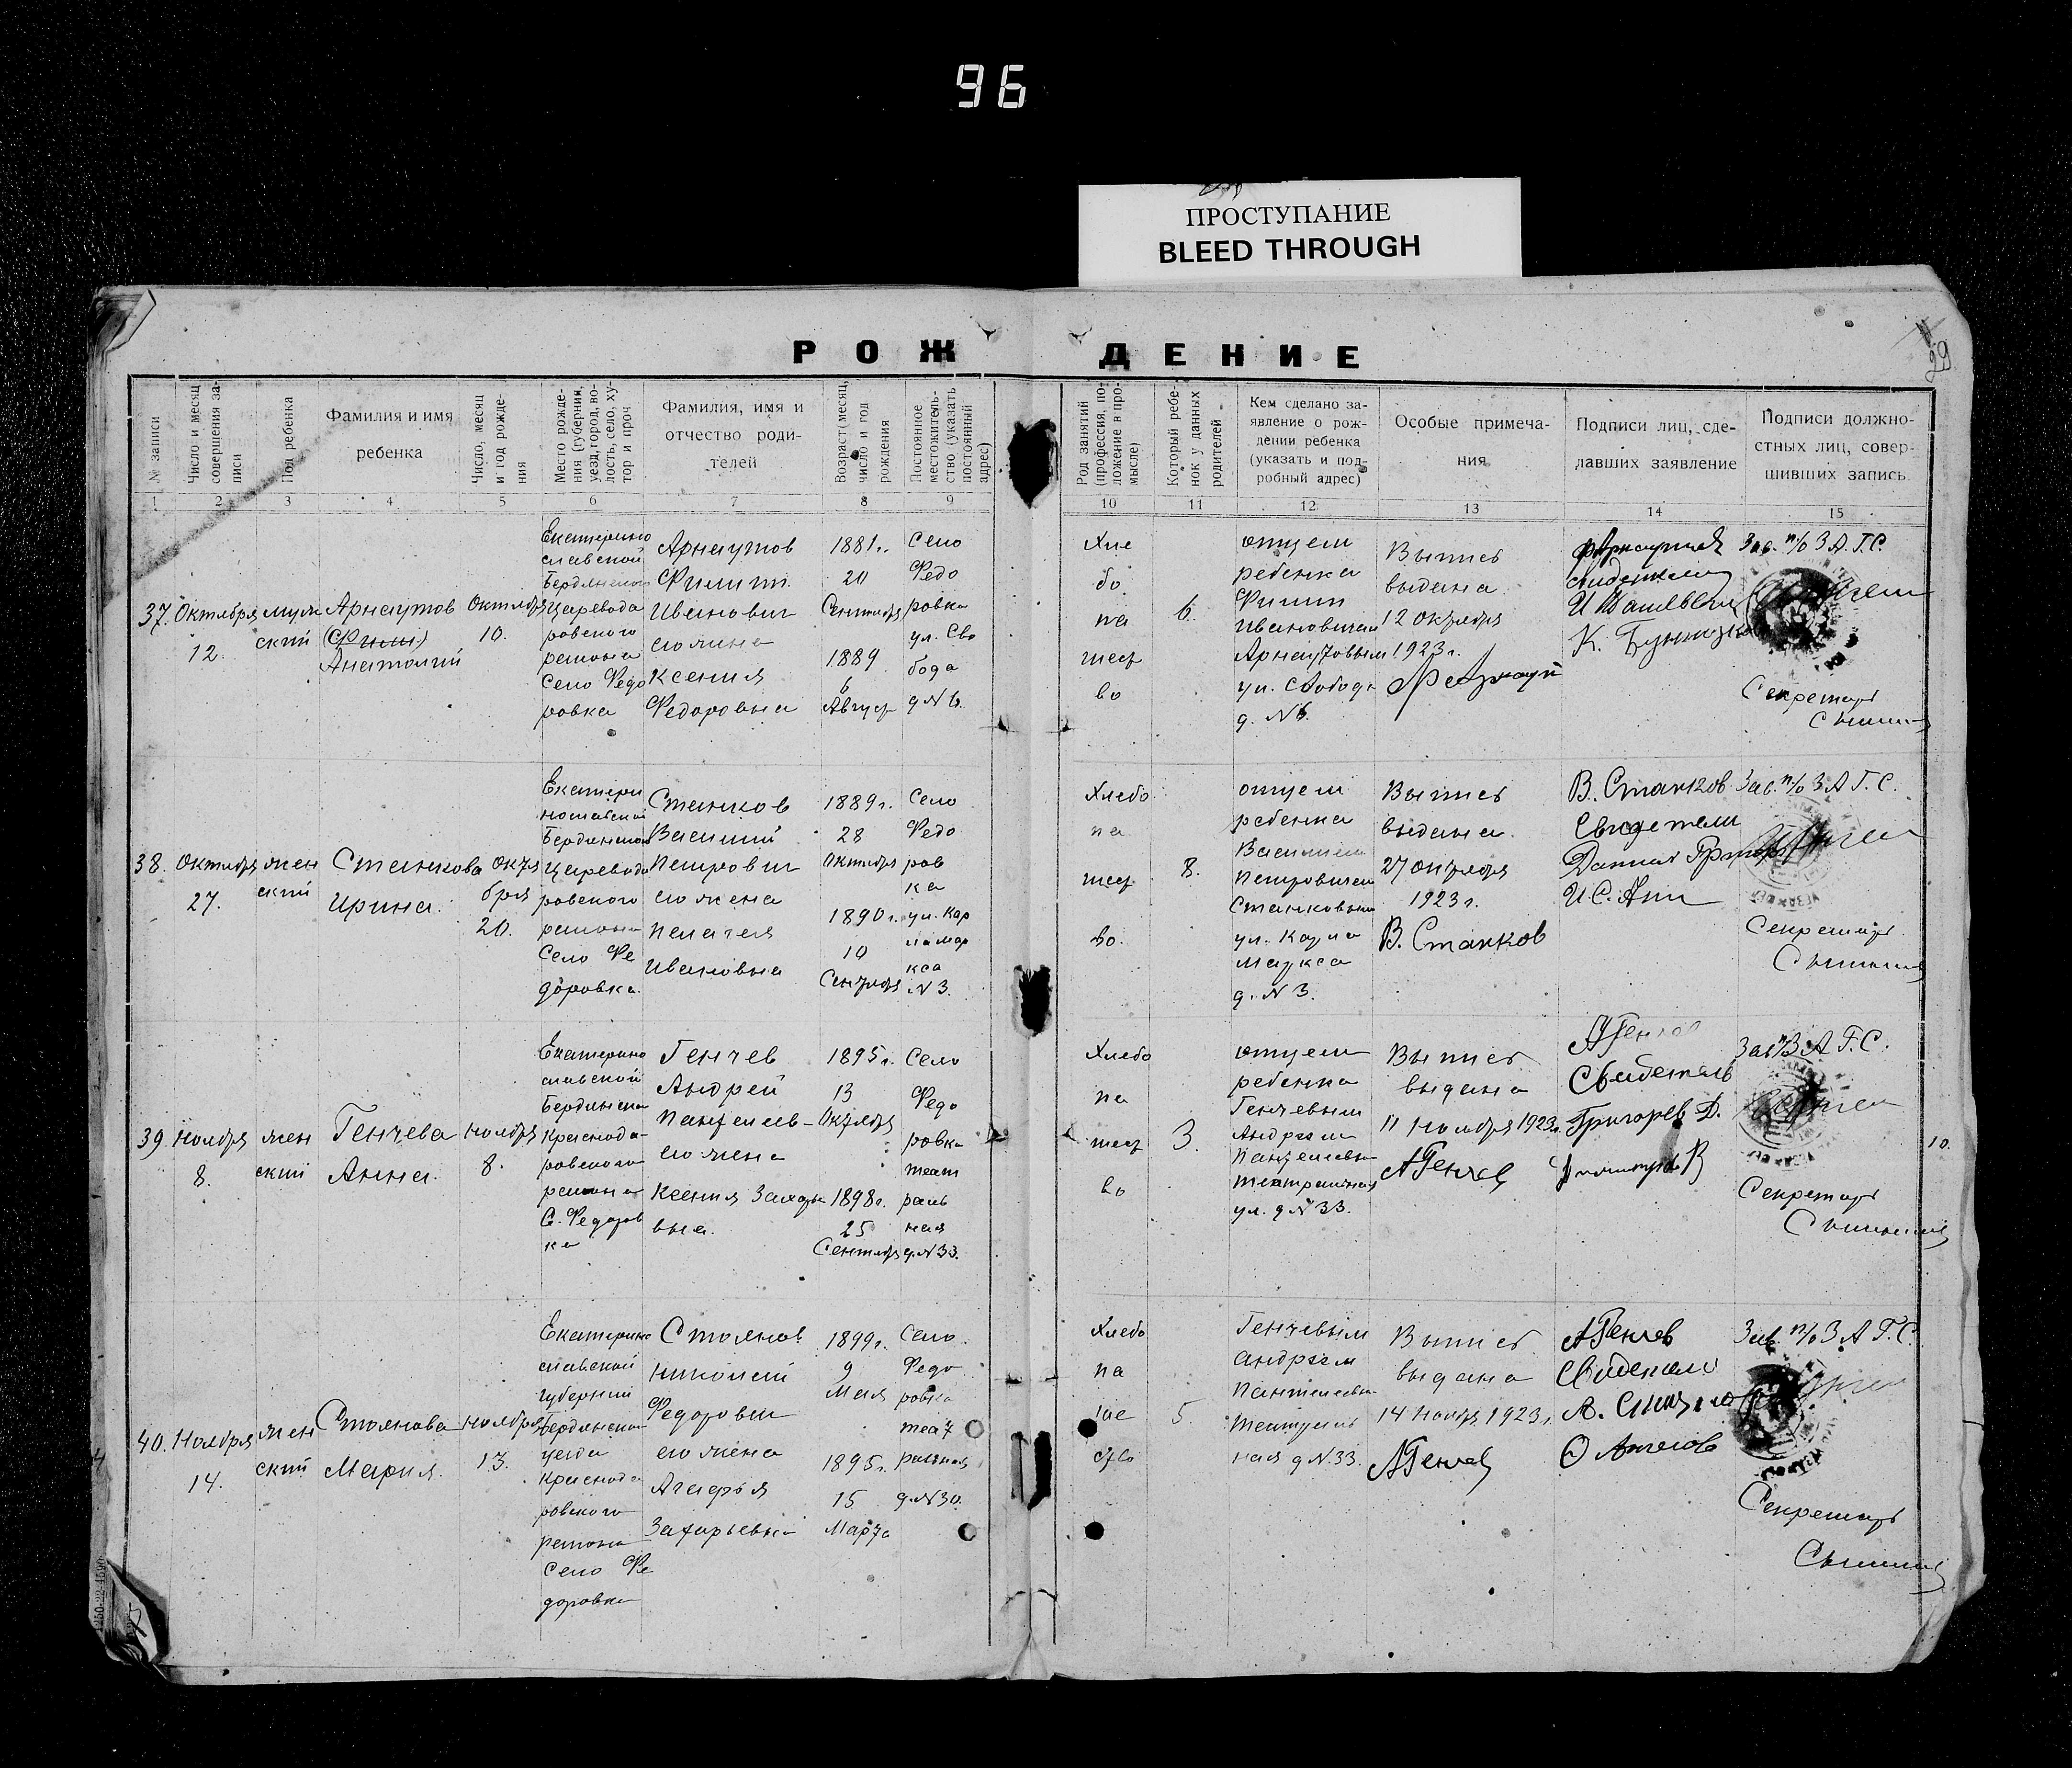 96
ПРОСТУПАНИЕ
BLEED THROUGH
РОЖДЕНИЕ
29
№ записи
Число и месяц
совершения за-
писи
Пол ребенка
Фамилия и имя
ребенка
Число, месяц
и год рожде-
ния
Место рожде-
ния (губерния,
уезд, город, во-
лость, село, ху-
тор и проч
Фамилия, имя и
отчество роди-
телей
Возраст (месяц,
число и год
рождения
Постоянное
местожитель-
ство (указать
постоянный
адрес)
Род занятий
(профессия, по-
ложение в про-
мысле)
Который ребе-
нок у данных
родителей
Кем сделано за-
явление о рож-
дении ребенка
(указать и под-
робный адрес)
Особые примеча-
ния
Подписи лиц, сде-
лавших заявление
Подписи должно-
стных лиц, совер-
шивших запись
1 2 3 4 5 6 7 8 9 10 11 12 13 14 15
37.
Октября
12.
муж
ский
Арнаутов
(Филип)
Анатолий
Октября
10.
Екатерино
славской
Бердянского
Царевода
ровского
района
Село Федо
ровка
Арнаутов
Филипп
Иванович
его жена
Ксения
Федоровна
1881г.
20
Сентября
1889
6
Август
Село
Федо
ровка
ул. Сво
бода
д N 6.
Хле
бо
па
шест
во
6.
отцем
ребенка
Филип
Ивановичем
Арнаутовым
ул. Свобода
д. N 6.
Выпись
выдана
12 октября
1923 г.
Зав. п/о З.А.Г.С.
Секретарь
38.
Октября
27.
жен
ский
Станкова
Ирина.
Октя
бря
20.
Екатери
нославской
Бердянского
Царевода
ровского
района
Село Фе
доровка.
Станков
Василий
Петрович
его жена
Пелагея
Ивановна
1889г.
28
Октября
1890 г.
10
Сентября
Село
Федо
ров
ка
ул. Кар
ла Мар
кса
N 3.
Хлебо
па
шест
во.
8.
отцем
ребенка
Василием
Петровичем
Станковым
ул. Карла
Маркса
д. N 3.
Выпись
выдана.
27 октября
1923 г.
В. Станков
В. Станков
Свидетели
Зав. п/о З А Г. С.
Секретарь
39.
Ноября
8.
жен
ский
Генчева
Анна.
Ноября
8.
Екатерино
славской
Бердянского
Краснода-
ровского
района
С. Федоров
ка
Генчев
Андрей
Пантелеев-
его жена
Ксения Захарь
вна.
1895г.
13
Октября
1898г.
25
Сентября
Село
Федо
ровка
теат
раль
ная
д. N 33.
Хлебо
па
шест
во
3.
отцем
ребенка
Генчевым
Андреем
Пантелеевич
Театральная
ул. д N 33.
Выпись
выдана
11 Ноября 1923г.
А Генчев
А Генчев
Свидетель
Григорев Д.
Зав п/о З А Г. С.
Секретарь
10.
40.
Ноября
14.
жен
ский
Стоянова
Мария.
Ноября
13.
Екатерино
славской
губернии
Бердянского
уезда
Краснода
ровского
района
Село Фе
доровка
Стоянов
Николай
Федорович
его жена
Агафья
Захарьевна
1899г.
9
Мая
1895г.
15
Марта
Село
Федо
ровка
теат
ральная
д. N 30.
Хлебо
па
ше
ство
5.
Генчевым
Андреем
Пантелеевич
Театраль
ная д N. 33.
Выпись
выдана
14 Ноября 1923 г.
А Генчев
А Генчев
Свидетели
О Ангелов
Зав. п/о З А Г. С.
Секретарь